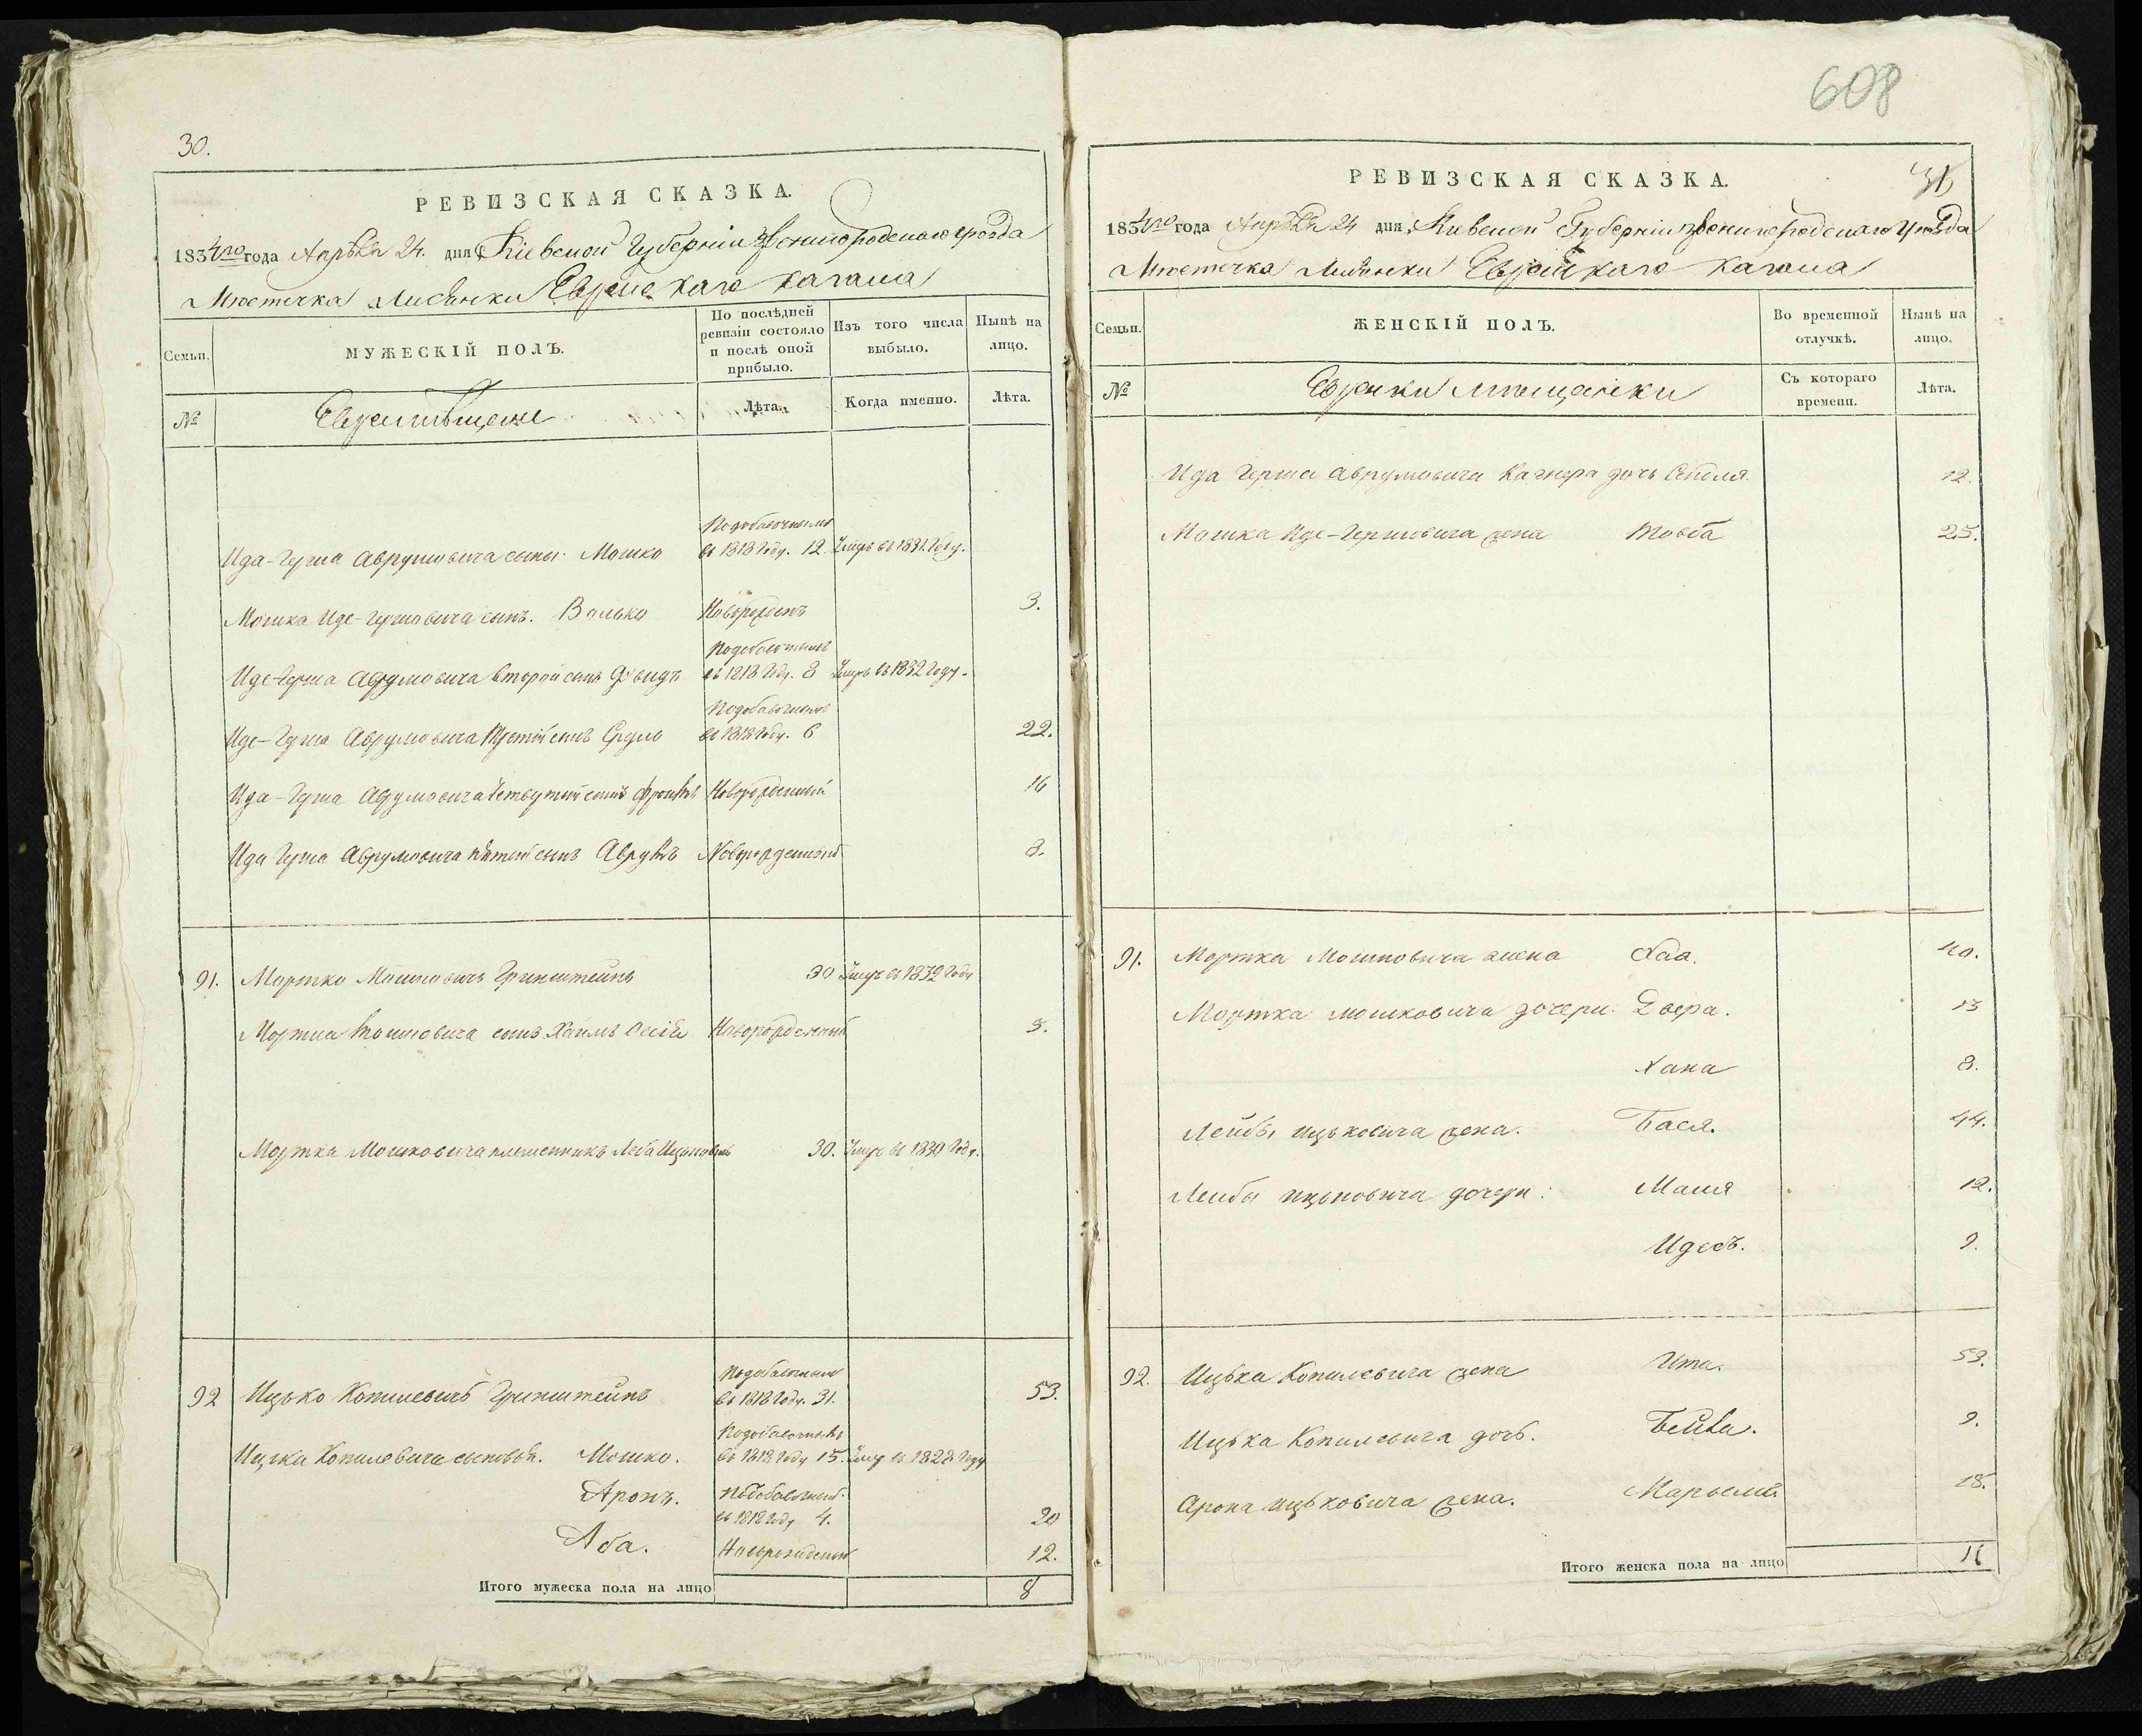 30.
РЕВИЗСКАЯ СКАЗКА.
1834го года Апрѣля 24. дня Кіевской Губерніи Звенигородскаго уѣзда
Мѣстечка Лисянки Еврейскаго кагала
Семьи.
МУЖЕСКІЙ ПОЛЪ.
По послѣдней ревизіи состояло и послѣ оной прибыло.
Изъ того числа выбыло.
Нынѣ на лицо.
№
Евреи мѣщане
Лѣта.
Когда именно.
Лѣта.
Ида-Герша Аврумовича сыны: Мошко
Подобавочнымъ въ 1818 Году. 12.
Умеръ въ 1831. Году.
Мошка Иде-Гершовича сынъ.Волько
Новорожденъ
3.
Иде-Герша Аврумовича второй сынъ Дувидъ
Подобавочнымъ въ 1818 Году. 8
Умеръ въ 1832 Году.
Иде-Герша Аврумовича Третій сынъ Сруль
Подобавочнымъ въ 1818 Году. 6
22.
Ида-Герша Аврумовича Четвертый сынъ
Новорожденный
16
Ида Герша Аврумовича пятый сынъ Аврумъ
Новорожденный
8.
91. Мортко Мошковичъ Гринштейнъ
30
Умеръ въ 1832 Году
Мортка Мошковича сынъ Хаимъ
Новорожденный
5.
Мортка Мошковича племенникъ Леба Ицковичъ
30.
Умеръ въ 1830 Году.
92 Ицько Копилевичъ Гринштейнъ
Подобавочнымъ въ 1818 Году. 31.
53.
Ицка Копилевича сыновья. Мошко.
Подобавочнымъ въ 1818 Году 15.
Умеръ въ 1828 Году
Аронъ.
Подобавочный. въ 1818 Году 4.
20
Аба.
Новорожденный
12.
Итого мужеска пола на лицо
8
608
РЕВИЗСКАЯ СКАЗКА.
31
1834го года Апрѣля 24 дня, Кіевской Губерніи Звенигородскаго Уѣзда
Мѣстечка Лисянки Еврейскаго кагала
Семьи.
ЖЕНСКІЙ ПОЛЪ.
Во временной отлучкѣ.
Нынѣ на лицо.
№
Еврейки мѣщанки
Съ котораго времени.
Лѣта.
Ида Герша Аврумовича дочь
12.
Мошка Иде-Гершовича жена Товба
25.
91. Мортка Мошковича жена
40.
Мортка мошковича дочери: Двера.
13
Хана
8.
Лейбы ицьковича жена. Бася.
44.
Лейбы ицьковича дочери: Маля
12.
Идесъ.
9.
92. Ицька Копилевича жена Ита.
53.
Ицька Копилевича дочь. Бейла.
9.
Арона ицьковича жена. Марьемъ
18.
Итого женска пола на лицо
11